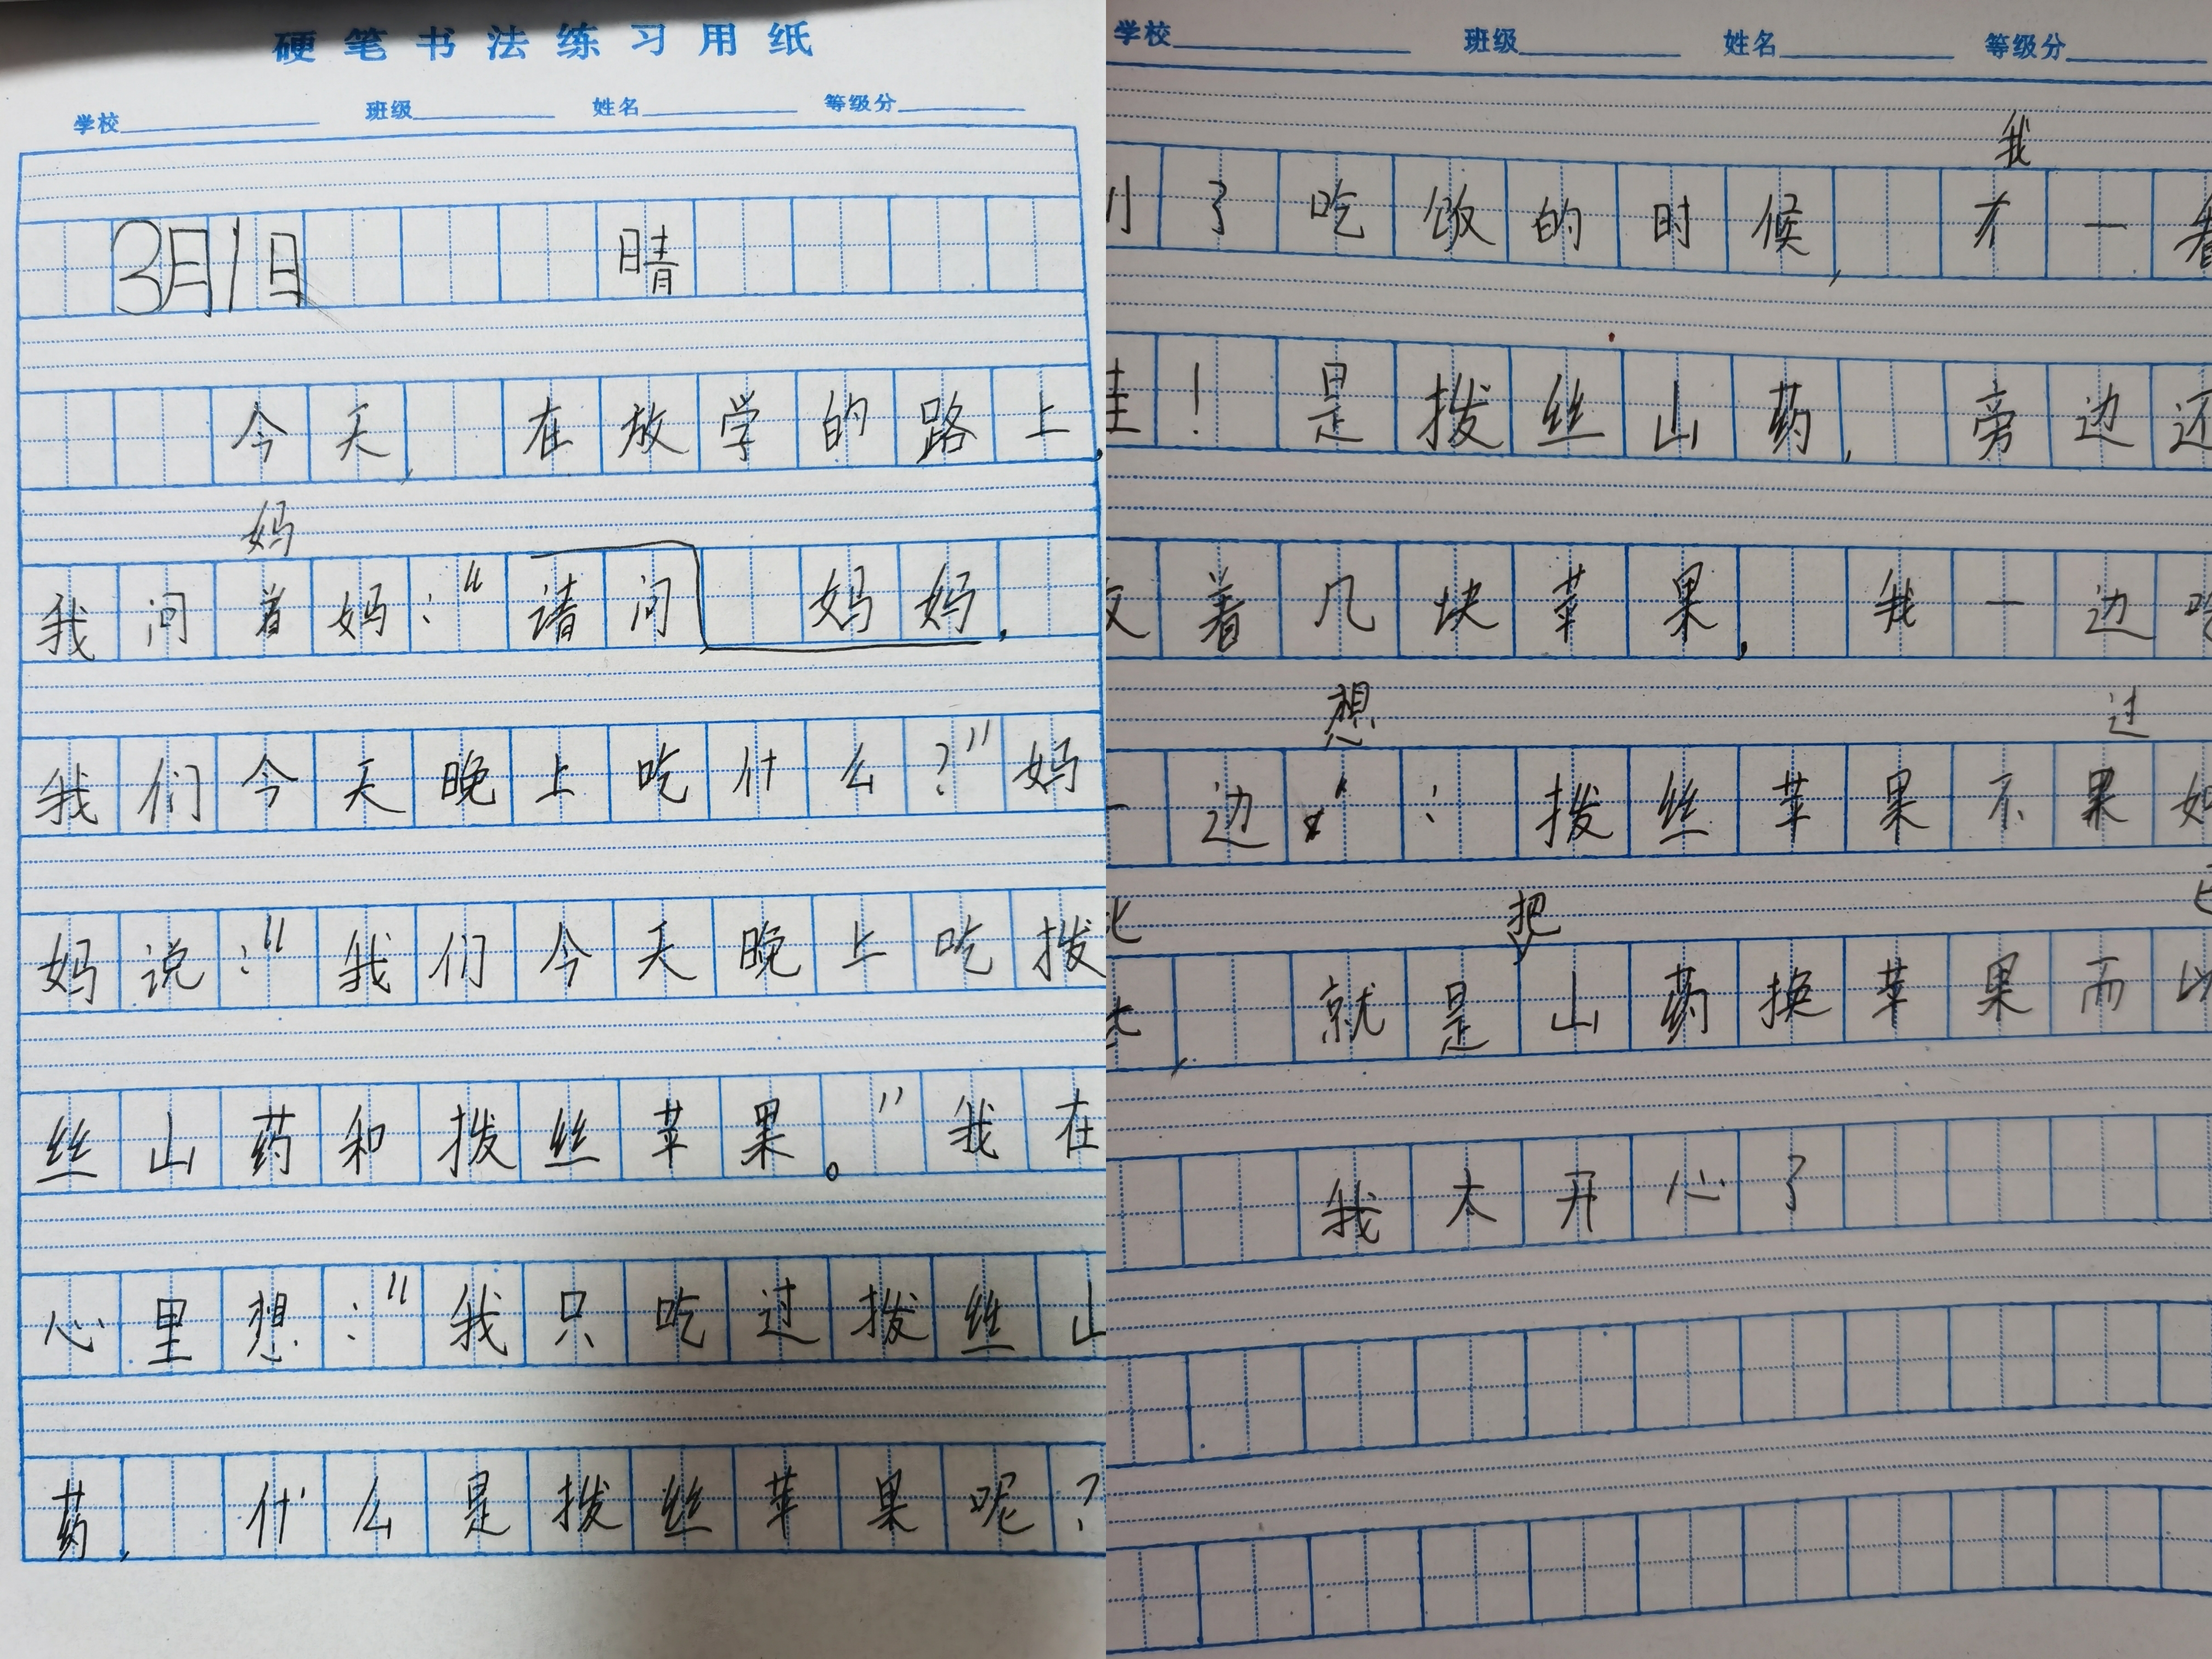 硬笔书法练习用纸
学校 班级 姓名 等级分
3月1日 晴
今天,在放学的路上,
妈
我问着妈:“请问 妈妈,
我们今天晚上吃什么?”妈
妈说:“我们今天晚上吃拨
丝山药和拨丝苹果。”我在
心里想:“我只吃过拨丝山
药,什么是拨丝苹果呢?
学校 班级 姓名 等级分
我
了吃饭的时候, 才一看
! 是拨丝山药, 旁边还
着几块苹果, 我一边
想 过
一边 : 拨丝苹果不果如
把
, 就是山药换苹果而以
我太开心了